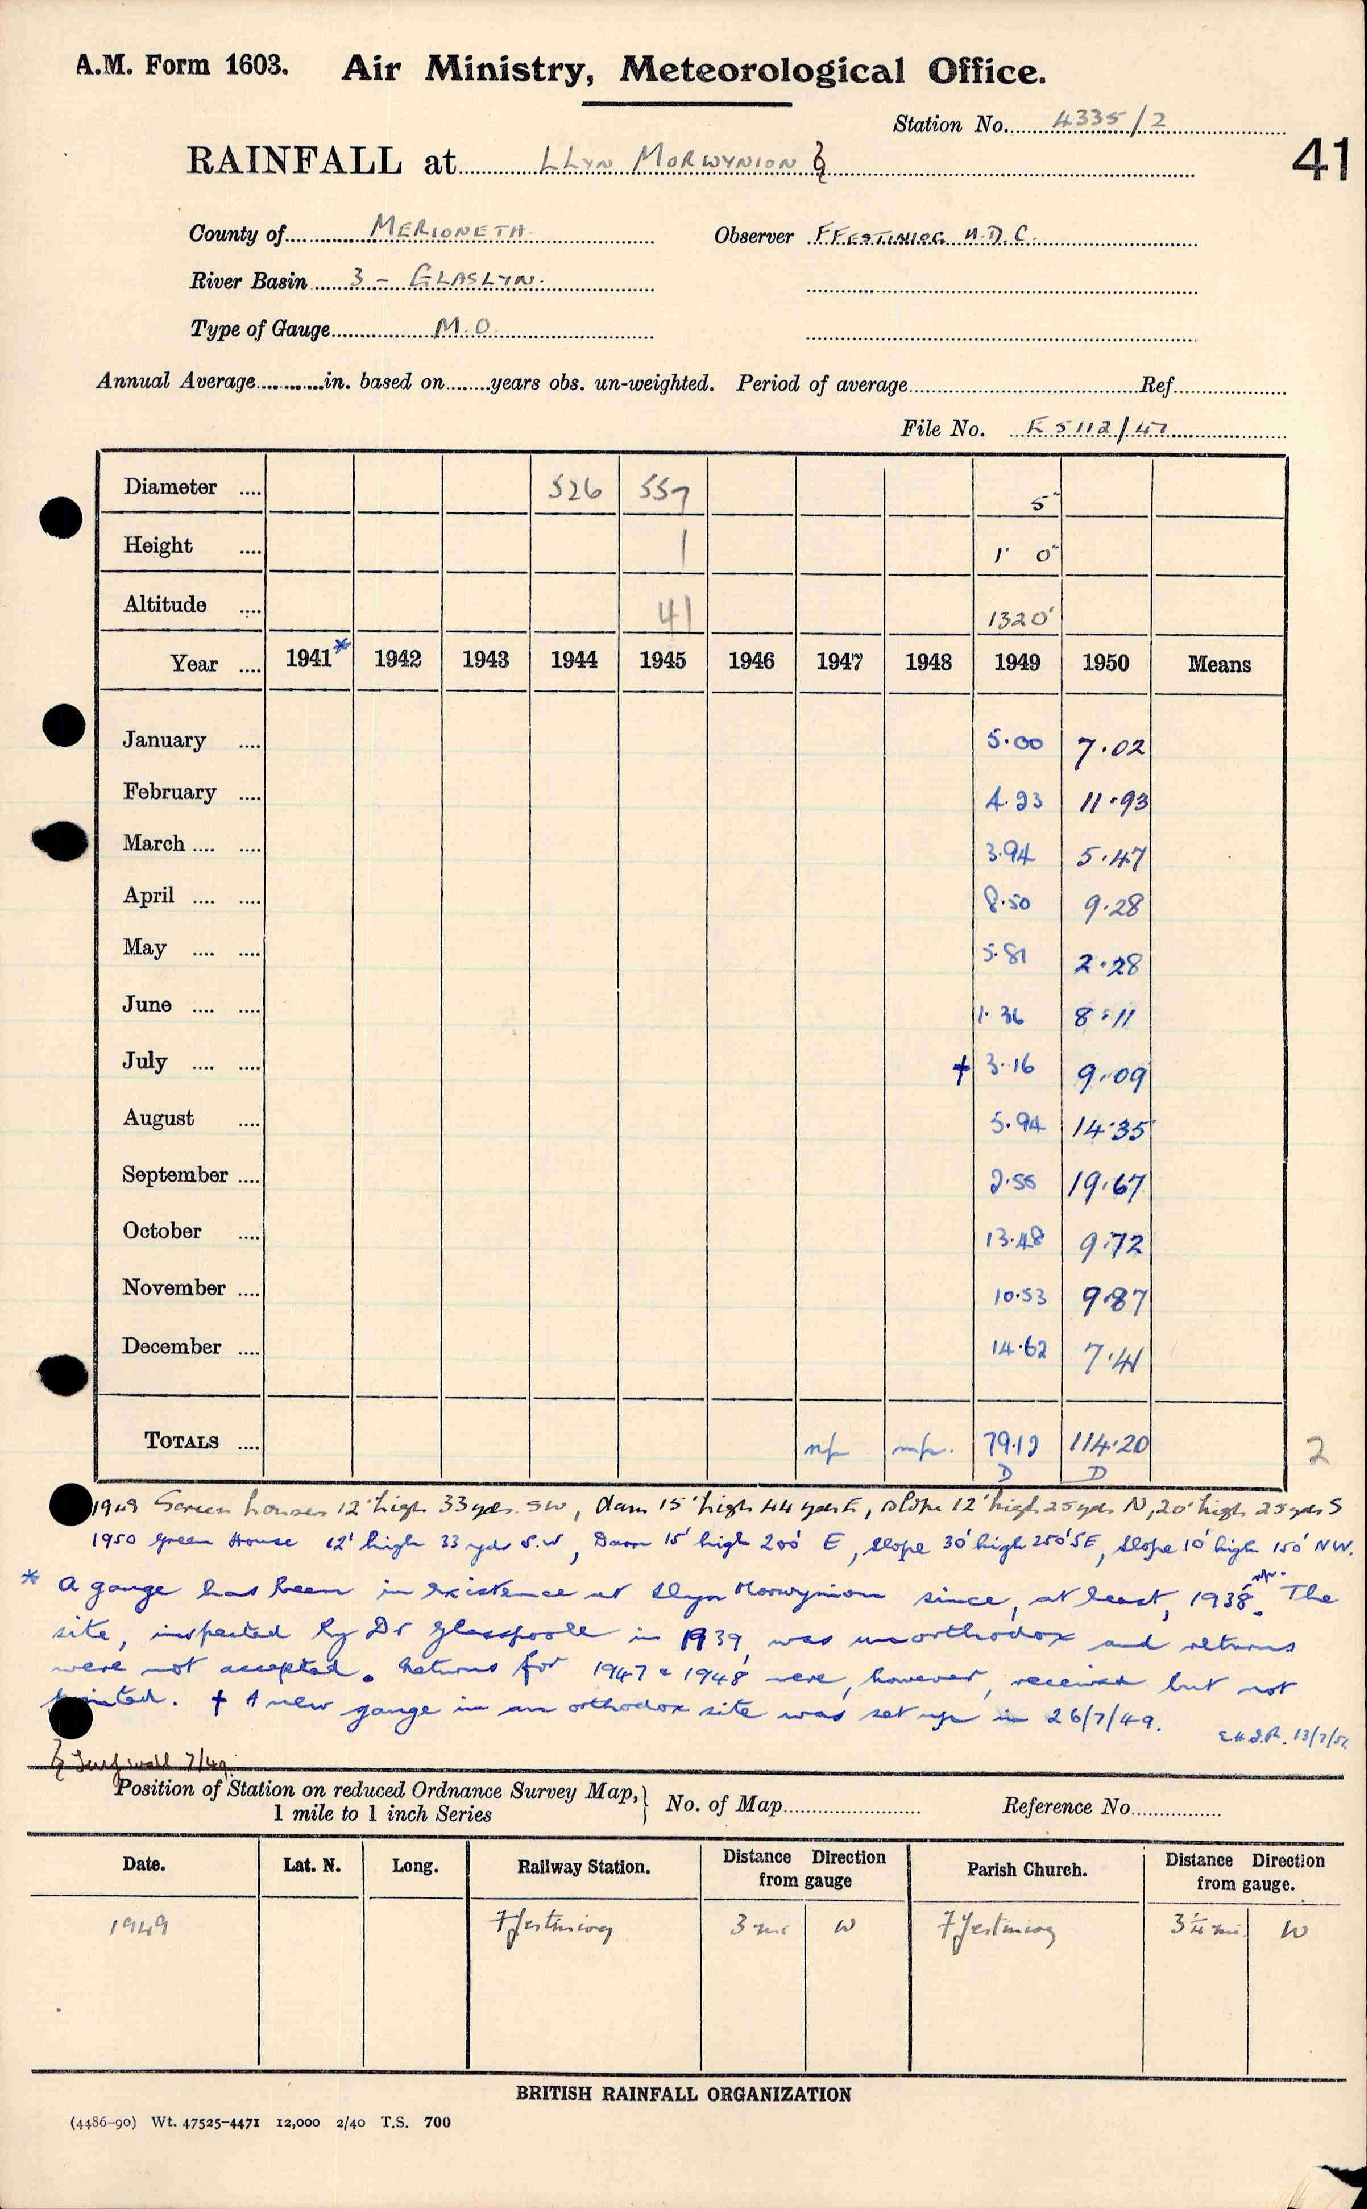 A.M. Form 1603. Air Ministry, Meteorological Office.
Station No. 4335/2
41
RAINFALL at LLYN MORWYNION
County of MERIONETH Observer FFESTINIOG U.D.C.
River Basin 3 - GLASLYN.
Type of Gauge M.O.
Annual Average in. based on years obs. un-weighted. Period of average Ref
File No. 5112/47
Diameter .... 526 557 5"
Height .... 1 1' 0"
Altitude .... 41 1320'
Year .... 1941* 1942 1943 1944 1945 1946 1947 1948 1949 1950 Means
January .... 5.00 7.02
February .... 4.23 11.93
March .... .... 3.94 5.47
April .... .... 8.50 9.28
May .... .... 5.81 2.28
June .... .... 1.36 8.11
July .... .... † 3.16 9.09
August .... 5.94 14.35
September .... 2.55 19.67
October .... 13.48 9.72
November .... 10.53 9.87
December .... 14.62 7.41
TOTALS .... np np. 79.12 114.20 2
D D
1949 houses 12' high 33 yds. SW, dam 15' high 44 yds E, slope 12' high 25 yds N, 20' high 25 yds S
1950 Green House 12' high 33 yds S.W, Dam 15' high 200' E, slope 30' high 250' SE, slope 10' high 150' NW.
* A gauge has been in existence at Llyn Morwynion since, at least, 1938. The
site, inspected by Dr Glasspoole in 1939, was unorthodox and returns
were not accepted. Returns for 1947 & 1948 were, however, received but not
printed. † A new gauge in an orthodox site was set up in 26/7/49.
13/2/52
Turf wall 7/49.
Position of Station on reduced Ordnance Survey Map, 1 mile to 1 inch Series No. of Map Reference No.
Date. Lat. N. Long. Railway Station. Distance Direction from gauge Parish Church. Distance Direction from gauge.
1949 Ffestiniog 3 mi W Ffestiniog 3¼ mi W
BRITISH RAINFALL ORGANIZATION
(4486-90) Wt. 47525-4471 12,000 2/40 T.S. 700